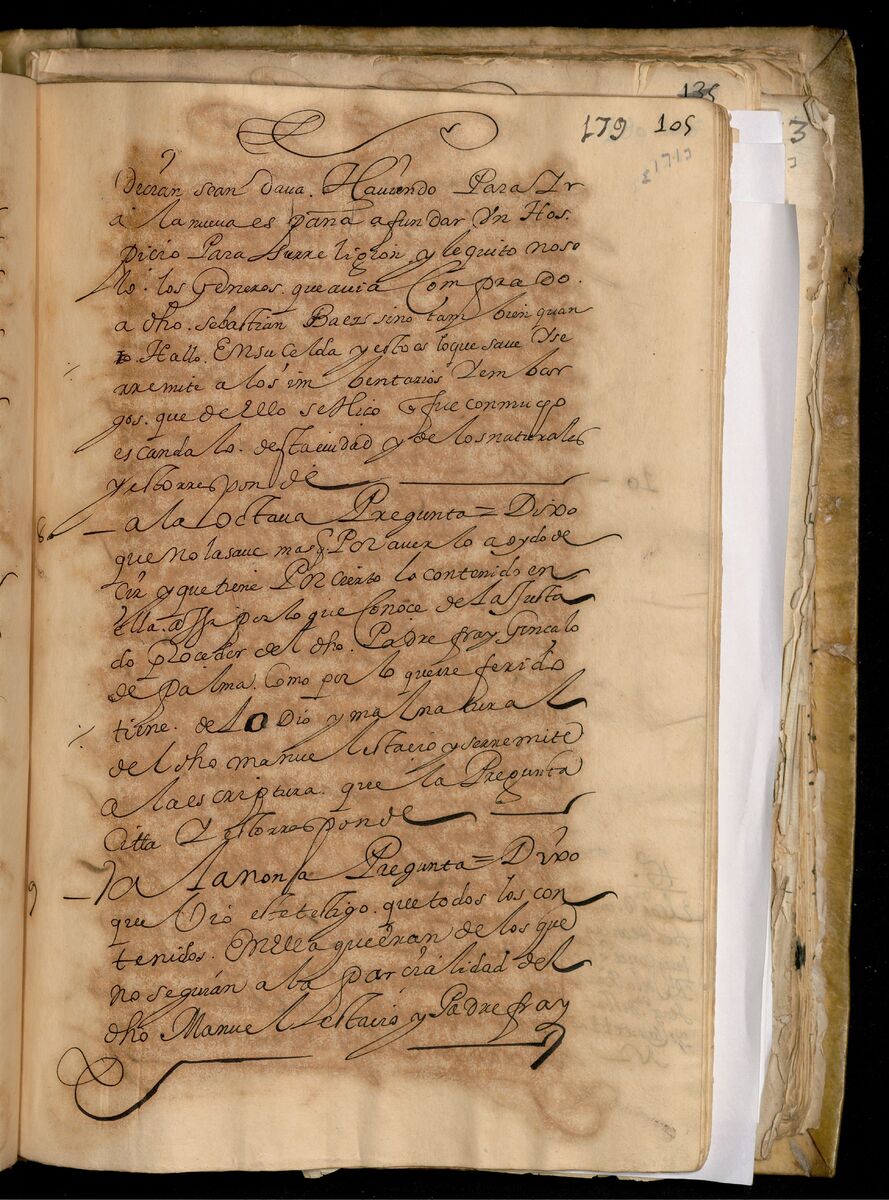 179 105
Dician sean dava. Haviendo Para Ir
a la nueva españa a fundar Vn Hos
picio Para su rreligion. y le quito no so
lo. los Generos. que avia Comprado.
a dho. sebastian Baes sino tambien quan
to. Hallo. En su Celda y esto es lo que save Y se
rremite a los imbentarios Y embar
gos. que de Ello se Hico y fue con mucho
escandalo. desta ciudad y de los naturales
y esto rresponde
8 a la Octava Pregunta = Dixo
que No la save mas q Por averlo a oydo de
cir y que tiene Por cierto lo contenido en
ella. assi por lo que Conoce de la Justa
do proceder del dho. Padre fray Goncalo
de palma. Como por lo que rre ferido
tiene. del Odio y mal natural
del dho manuel estacio y se rremite
a la escriptura. que la Pregunta
Citta Y esto rresponde
9 Ya la nona Pregunta = Dixo
que Vio este testigo. que todos los con
tenidos. En ella que eran de los que
no seguian a la parcialidad del
dho Manuel estacio y Padre fray
135
3